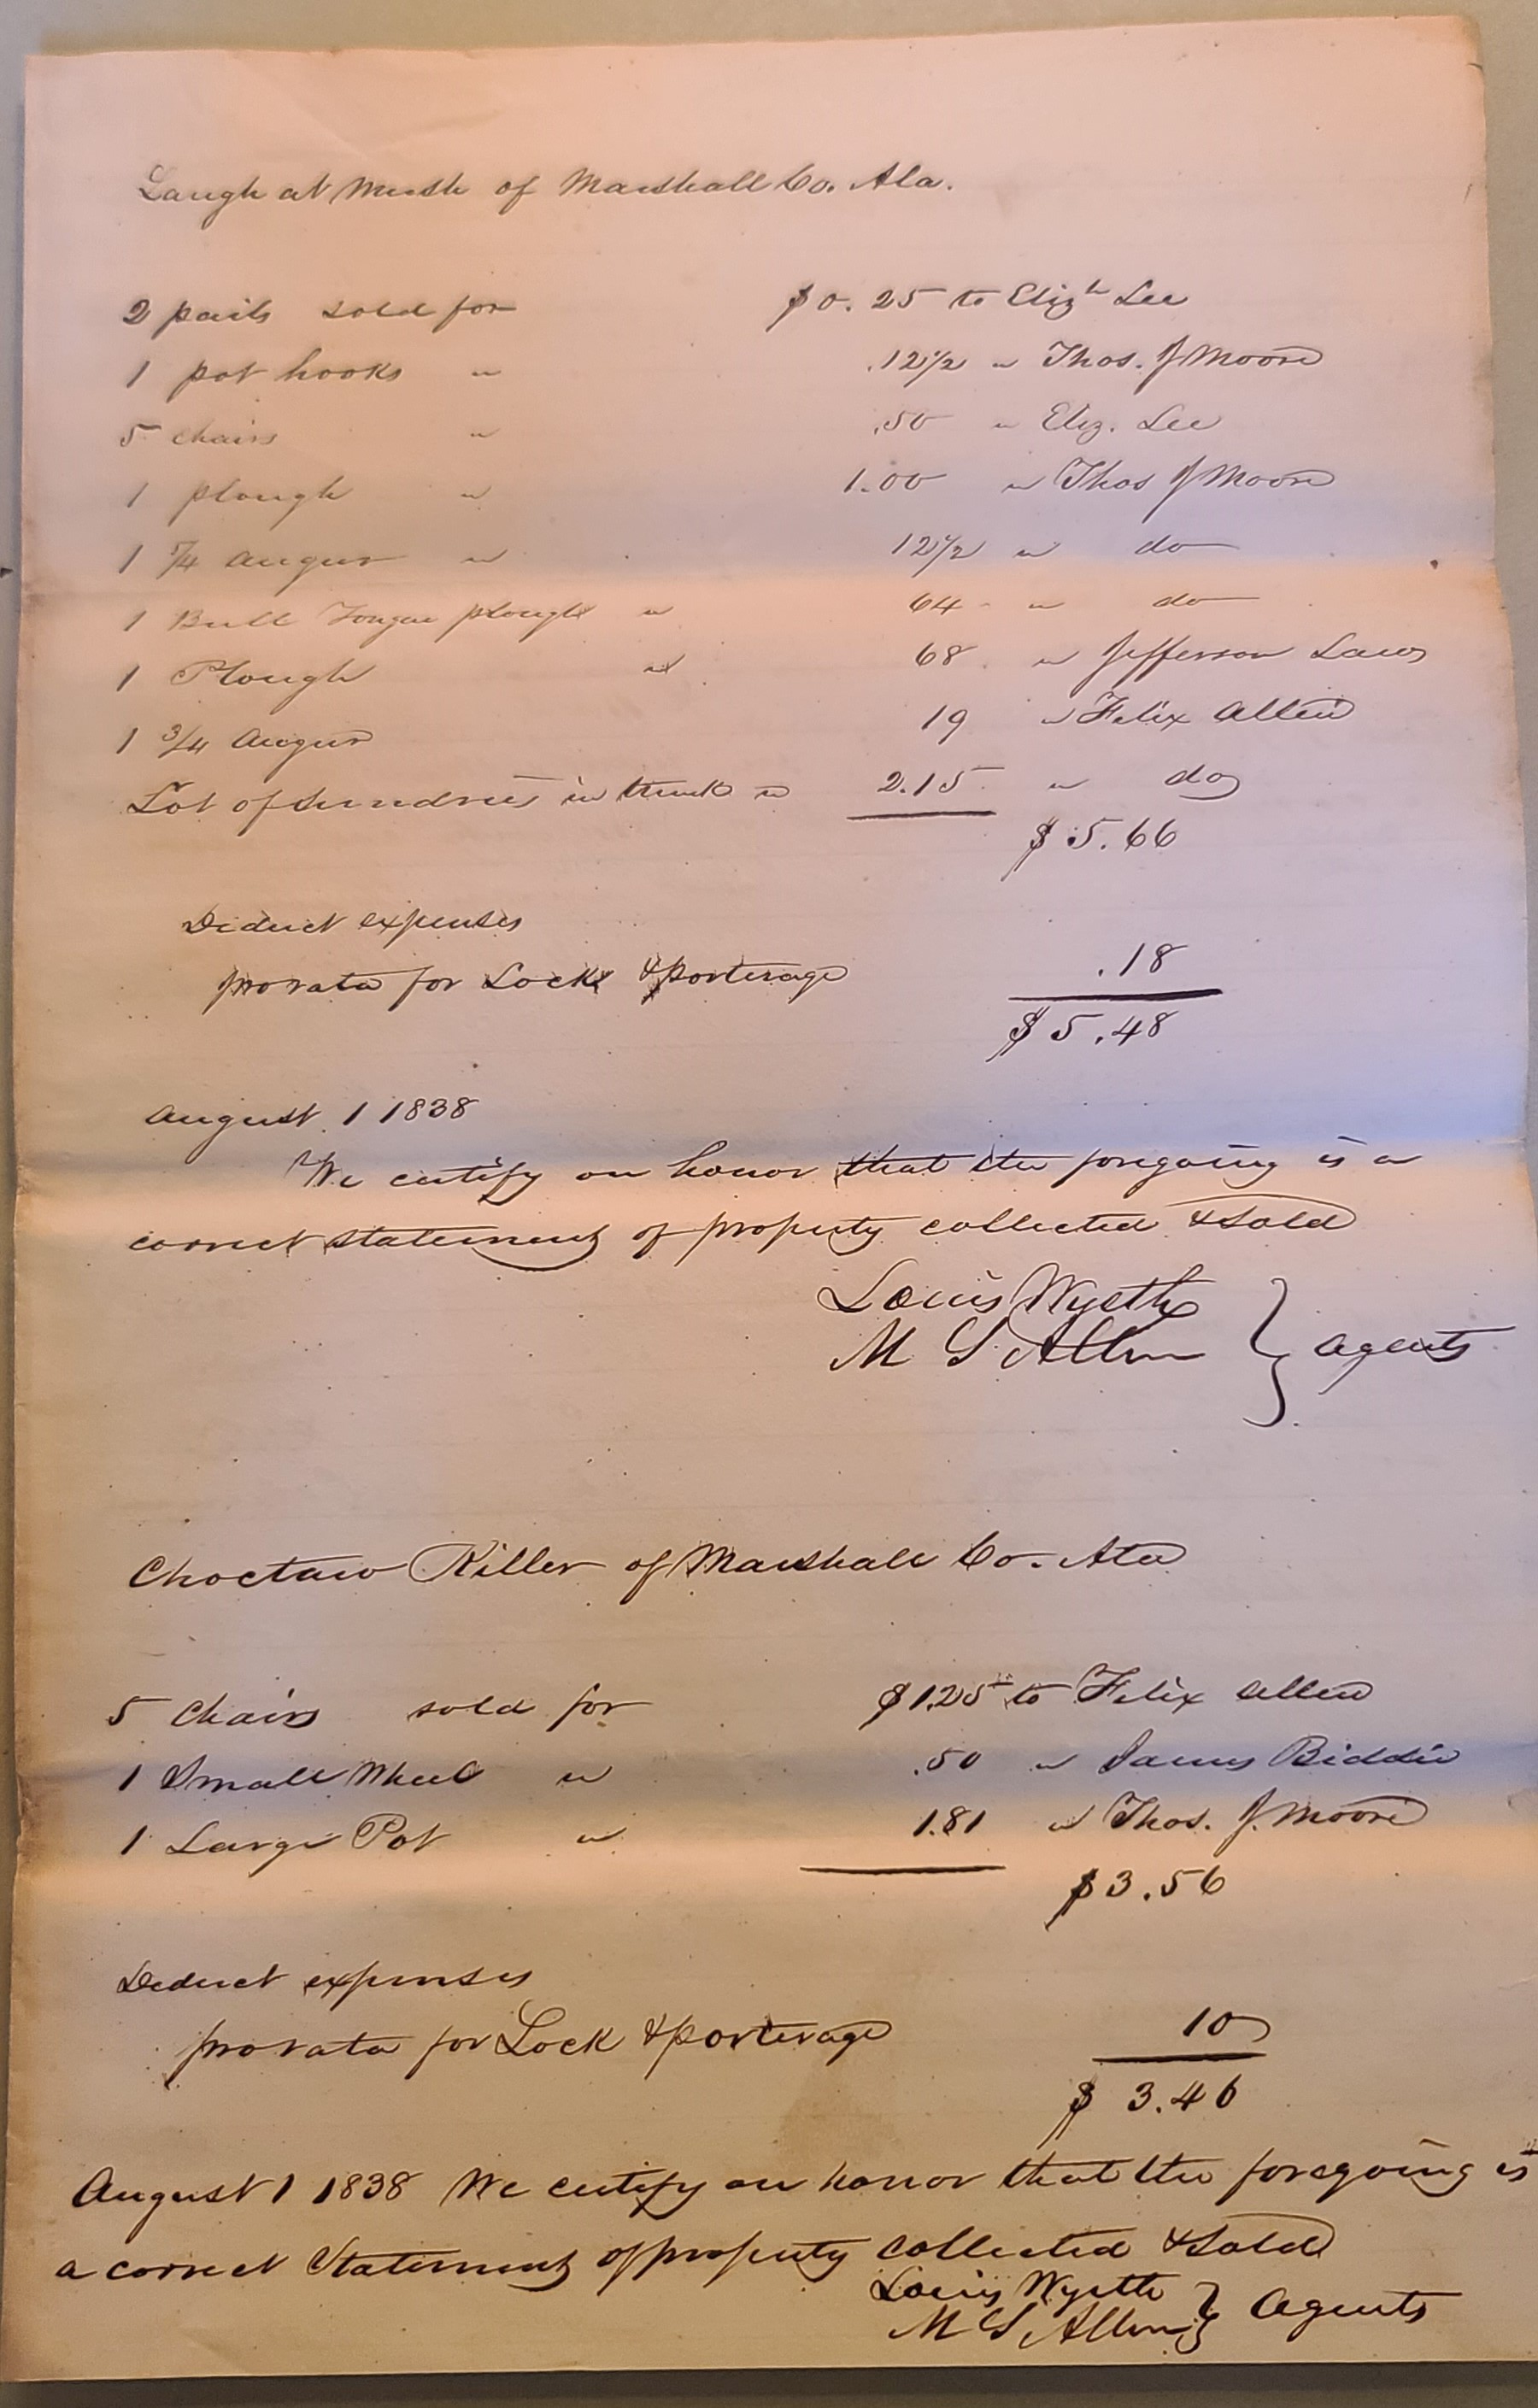 Laugh at Mush of Marshall Co. Ala.
2 pails sold for $0.25 to Eliz<sup>h</sup> Lee
1 pot hooks " .12 1/2 " Thos. J Moore
5 chairs " .50 " Eliz. Lee
1 plough " 1.00 " Thos J Moore
1 7/4 augur " 12 1/2 " do
1 Bull Tongue plough " 64 " do
1 Plough " 68 " Jefferson Laws
1 3/4 augur 19 " Felix Allen
Lot of sundries in trunk " 2.15 " do
$5.66
Deduct expenses
prorata for Locks & porterage .18
$5.48
August 1 1838
We certify on honor that the foregoing is a
correct statement of property collected & sold
Louis Wyeth
M G Allen } agents
Choctaw Killer of Marshall Co. Ala
5 Chairs sold for $1.25 to Felix Allen
1 Small Wheel " .50 " James Biddie
1 Large Pot " 1.81 " Thos. J. Moore
$3.56
Deduct expenses
prorata for Lock & porterage 10
$3.46
August 1 1838 We certify on honor that the foregoing is
a correct Statement of property collected & sold
Louis Wyeth
M G Allen } Agents